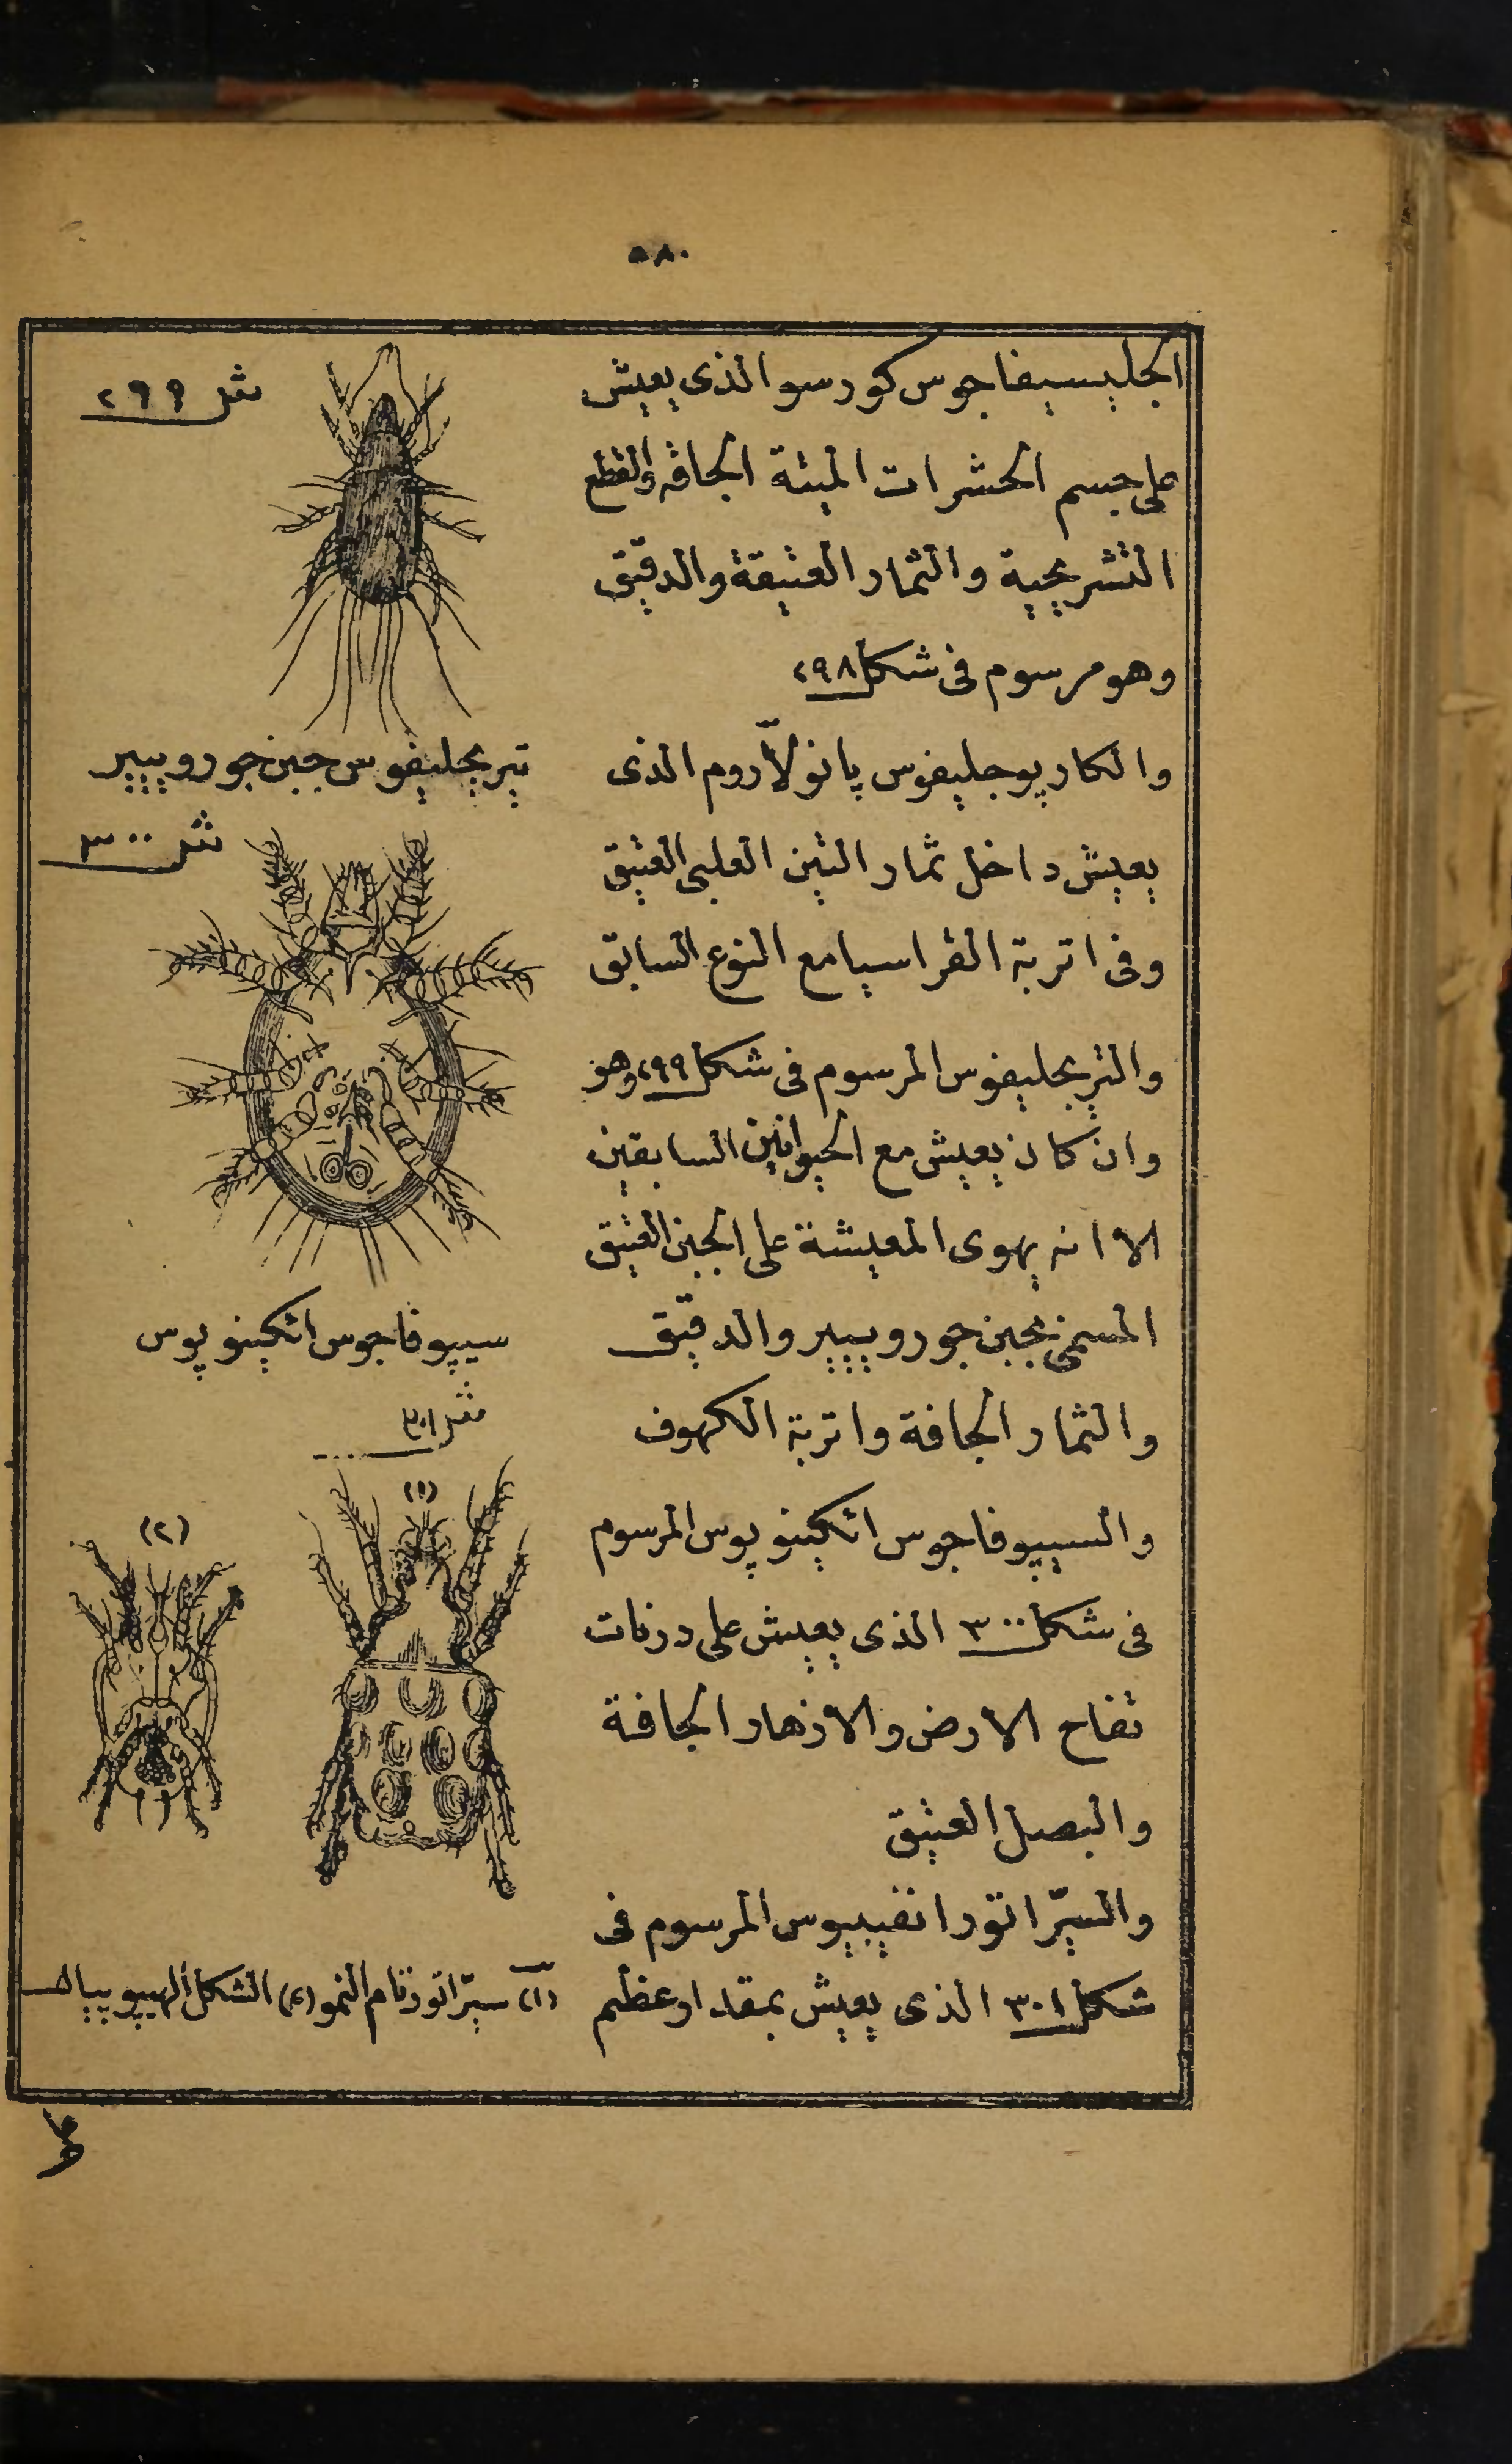 ٥٨٠
الجليسيفاجوس كورسو الذى يعيش
على جسم الحشرات الميتة الجافه والقطع
التشريحية والثمار العتيقة والدقيق
وهو مرسوم فى شكل ٢٩٨
والكارپوجليفوس پانولّاروم الذى
يعيش داخل ثمار التين العلبى العتيق
وفى اتربة القراسيا مع النوع السابق
والتريجليفوس المرسوم فى شكل ٢٩٩ وهو
وان كان يعيش مع الحيوانين السابقين
الا انه يهوى المعيشة على الجبن العتيق
المسمى بجبن جورويير والدقيق
والثمار الجافة واتربة الكهوف
والسيپوفاجوس اتكينوپوس المرسوم
فى شكل ٣٠٠ الذى يعيش على درنات
تفاح الارض والازهار الجافة
والبصل العتيق
والسيرّاتور انفيبيوس المرسوم فى
شكل ٣٠١ الذى يعيش بمقدار عظيم
شكل ٢٩٩
تيريجليفوس جبن جورويير
شكل ٣٠٠
سيپوفاجوس اتكينوپوس
شكل ٣٠١
(١)
(٢)
(١) سيرّاتور تام النمو (٢) الشكل الهيپوپيالـ